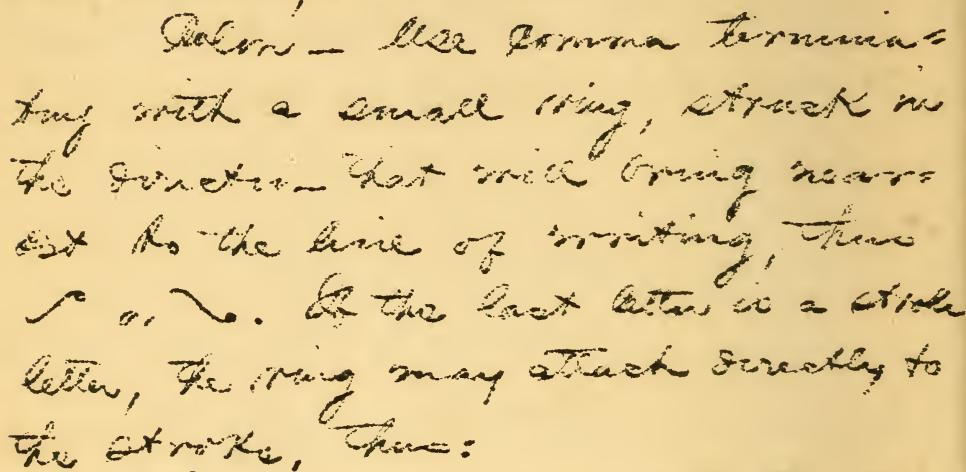 Colon — Use comma termina=
ting with a small ring, struck in
the direction that will bring near=
est to the line of writing, thus
or . If the last letter is a stroke
letter, the ring may attach directly to
the stroke, thus: